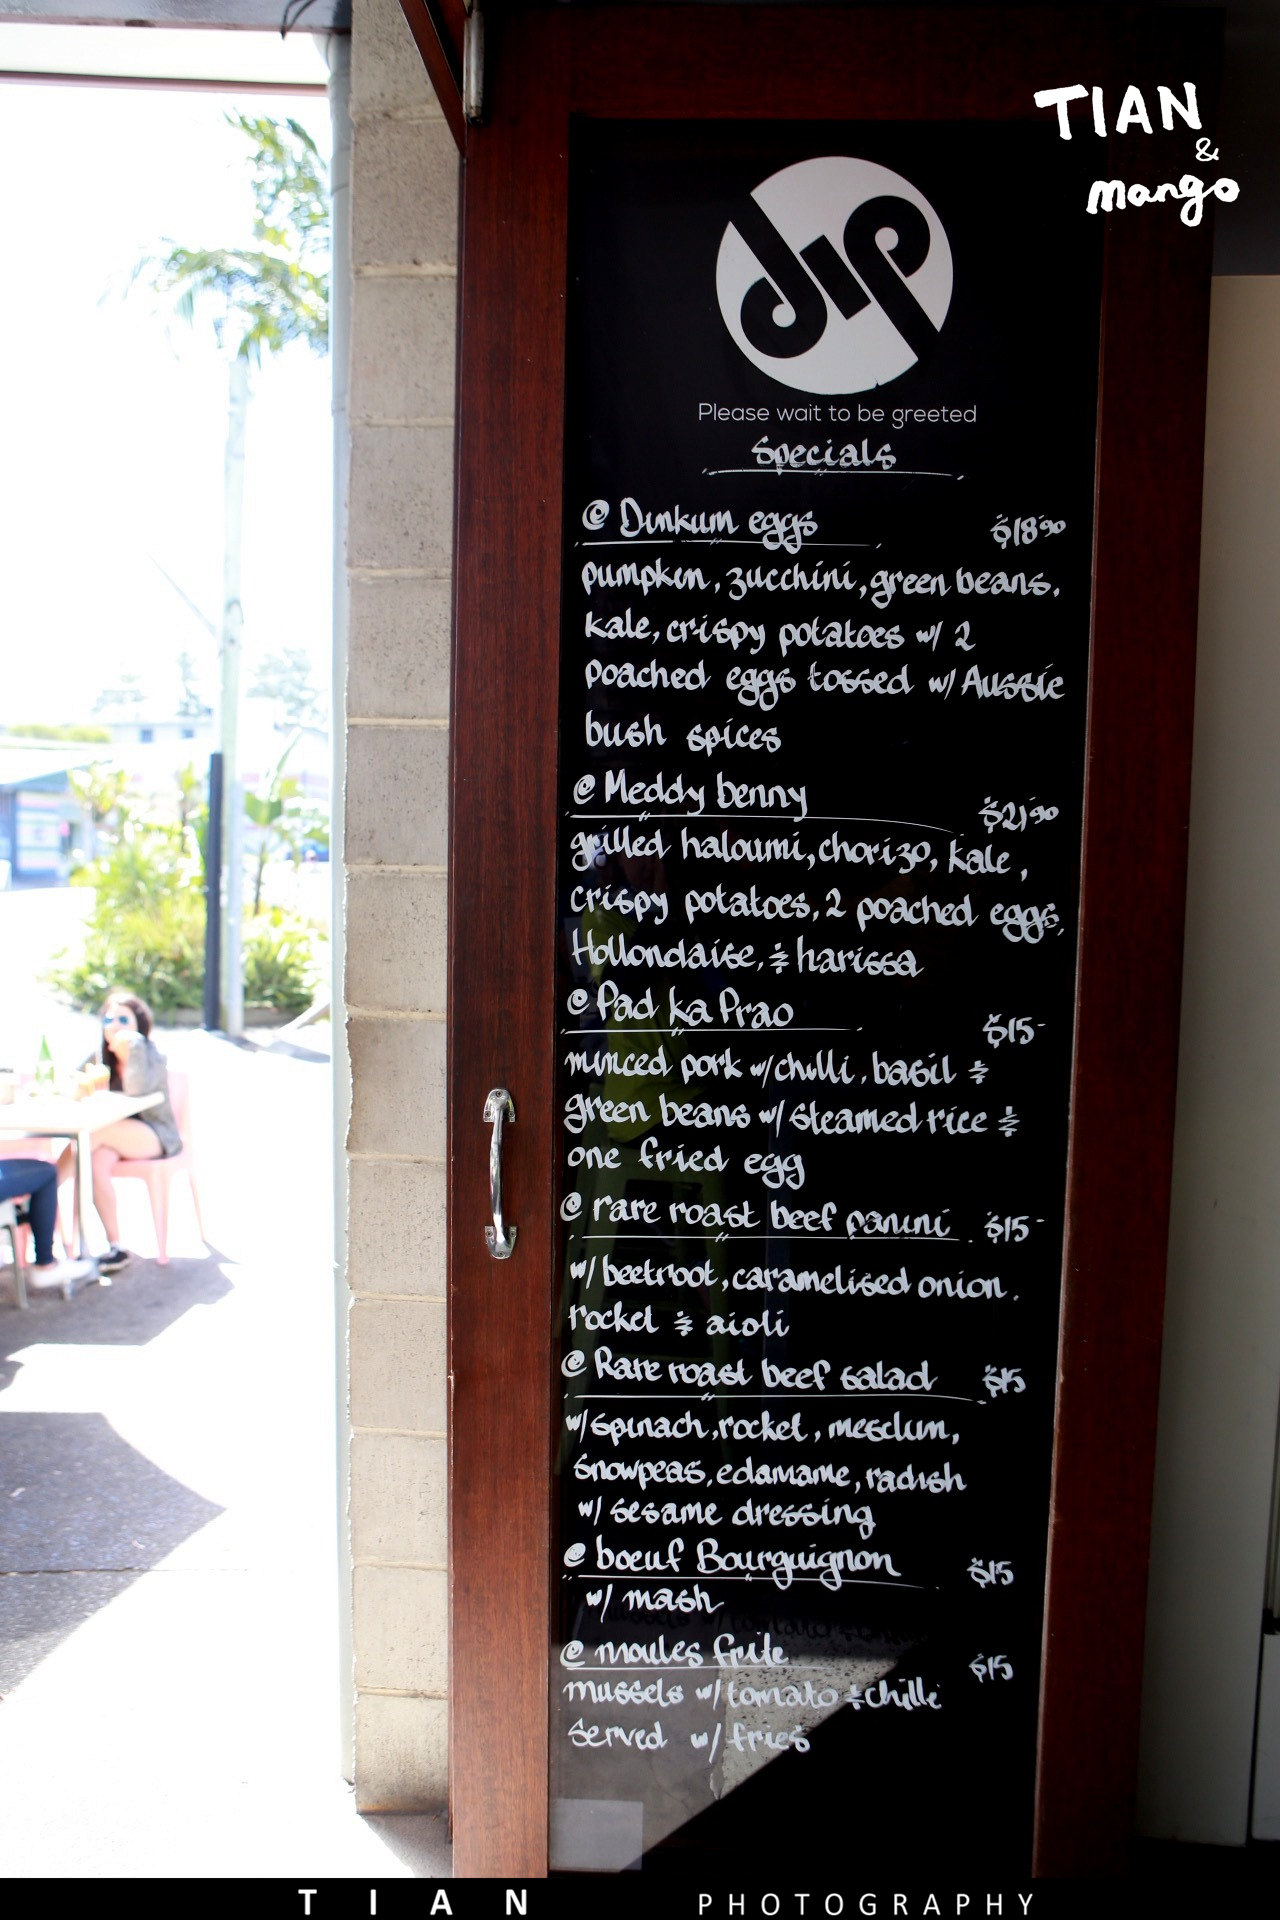 TIAN
&
mango
dip
Please wait to be greeted
Specials
@ Dinkum eggs $18.90
pumpkin, zucchini, green beans,
kale, crispy potatoes w/ 2
poached eggs tossed w/ Aussie
bush spices
@ Meddy benny $21.90
grilled haloumi, chorizo, kale,
crispy potatoes, 2 poached eggs,
Hollondaise, & harissa
@ Pad ka Prao $15-
minced pork w/ chilli, basil &
green beans w/ steamed rice &
one fried egg
@ rare roast beef panini $15-
w/ beetroot, caramelised onion,
rocket & aioli
@ Rare roast beef salad $15
w/ spinach, rocket, mesclum,
snowpeas, edamame, radish
w/ sesame dressing
@ boeuf Bourguignon $15
w/ mash
@ moules frite $15
mussels w/ tomato & chilli
served w/ fries
TIAN PHOTOGRAPHY